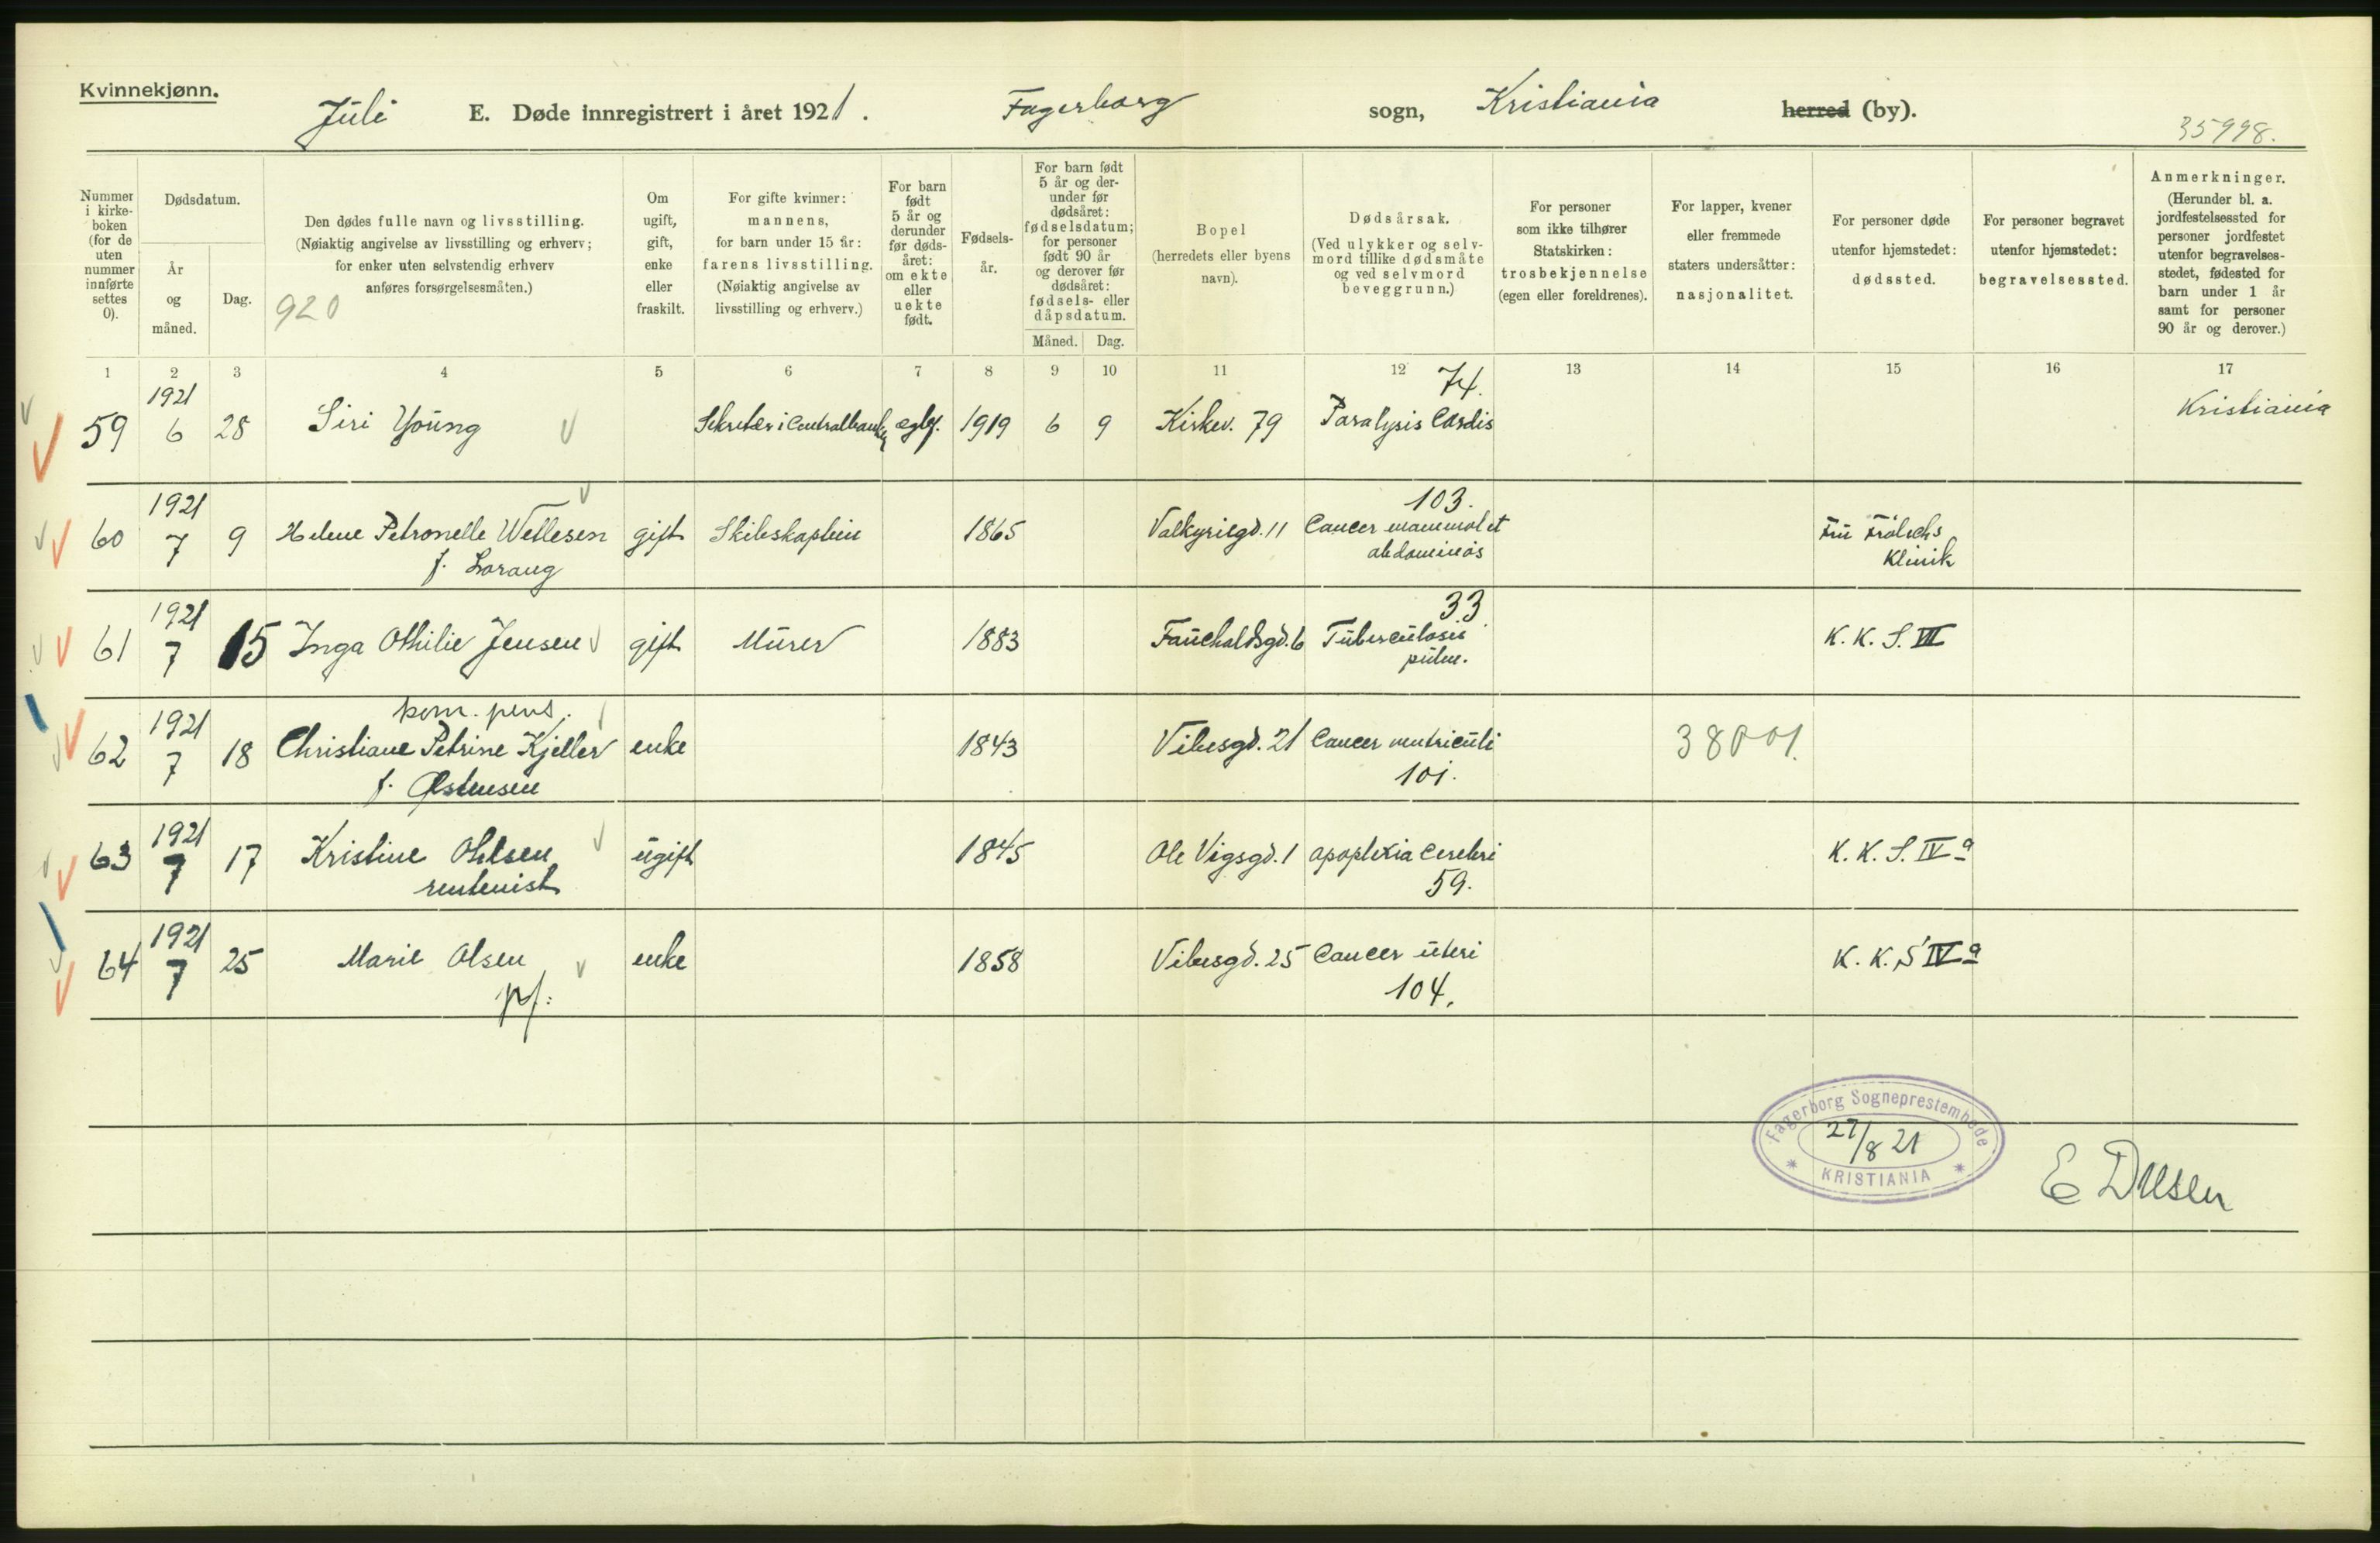 Kvinnekjønn.
Juli E. Døde innregistrert i året 1921. Fagerborg sogn, Kristiania herred (by).
35998.
Nummer i kirkeboken (for de uten nummer innførte settes 0).
Dødsdatum.
År og måned.
Dag.
Den dødes fulle navn og livsstilling.
(Nøiaktig angivelse av livsstilling og erhverv;
for enker uten selvstendig erhverv
anføres forsørgelsesmåten.)
920
Om ugift, gift, enke eller fraskilt.
For gifte kvinner:
mannens,
for barn under 15 år:
farens livsstilling.
(Nøiaktig angivelse av
livsstilling og erhverv.)
For barn født 5 år og derunder før dødsåret: om ekte eller uekte født.
Fødselsår.
For barn født 5 år og derunder før dødsåret: fødselsdatum; for personer født 90 år og derover før dødsåret: fødsels- eller dåpsdatum.
Måned. Dag.
Bopel
(herredets eller byens
navn).
Dødsårsak.
(Ved ulykker og selvmord tillike dødsmåte og ved selvmord beveggrunn.)
For personer
som ikke tilhører
Statskirken:
trosbekjennelse
(egen eller foreldrenes).
For lapper, kvener
eller fremmede
staters undersåtter:
nasjonalitet.
For personer døde
utenfor hjemstedet:
dødssted.
For personer begravet
utenfor hjemstedet:
begravelsessted.
Anmerkninger.
(Herunder bl. a.
jordfestelsessted for
personer jordfestet
utenfor begravelses-
stedet, fødested for
barn under 1 år
samt for personer
90 år og derover.)
1 2 3 4 5 6 7 8 9 10 11 12 13 14 15 16 17
1921 74.
59 6 28 Siri Young Sekretær i Centralbanken 1919 6 9 Kirkev. 79 Paralysis Cordis Kristiania
1921 103.
60 7 9 Helene Petronelle Wellesen gift Skibskaptein 1865 Valkyriegd. 11 Cancer mammol et Fru Frølichs
f. Lorang abdominos Klinik
1921 33
61 7 15 Inga Othilie Jensen gift Murer 1883 Fauchaldsgd. 6 Tuberculosis K. K. S. VII
pulm.
1921 kom. pens.
62 7 18 Christiane Petrine Kjeller enke 1843 Vibesgd. 21 Cancer ventriculi 38001.
f. Østensen 101.
1921
63 7 17 Kristine Ohlsen, ugift 1845 Ole Vigsgd. 1 apoplexia cerebri K. K. S. IV a
rentenist 59.
1921
64 7 25 Marie Olsen enke 1858 Vibesgd. 25 Cancer uteri K. K. S IV a
pf: 104.
Fagerborg Sogneprestembede
27/8 21
* KRISTIANIA *